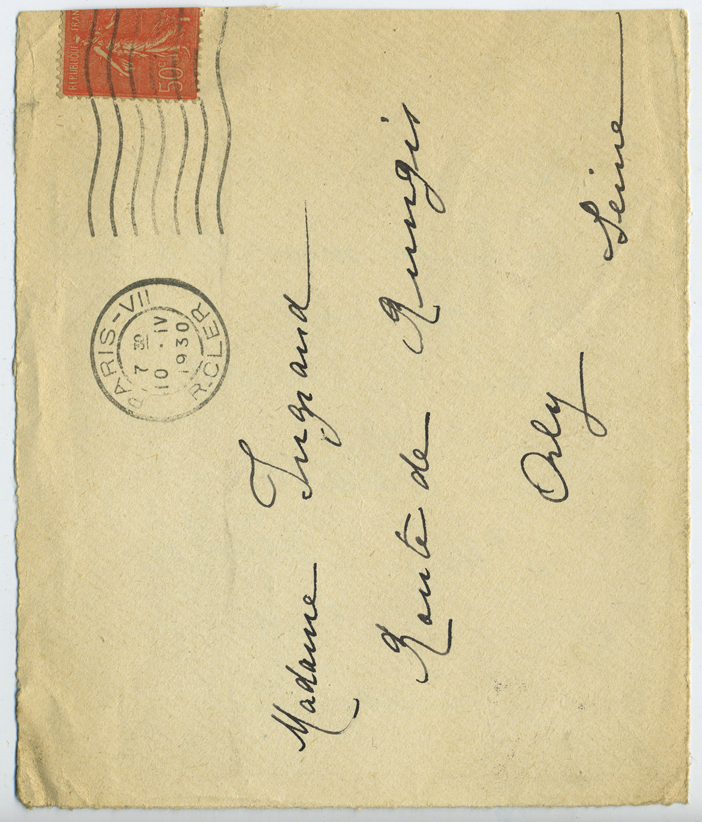 REPUBLIQUE FRAN
50c
PARIS-VII
7 30
10 . IV
1930
R. CLER
Madame Ingrand
Route de Rungis
Orly
Seine